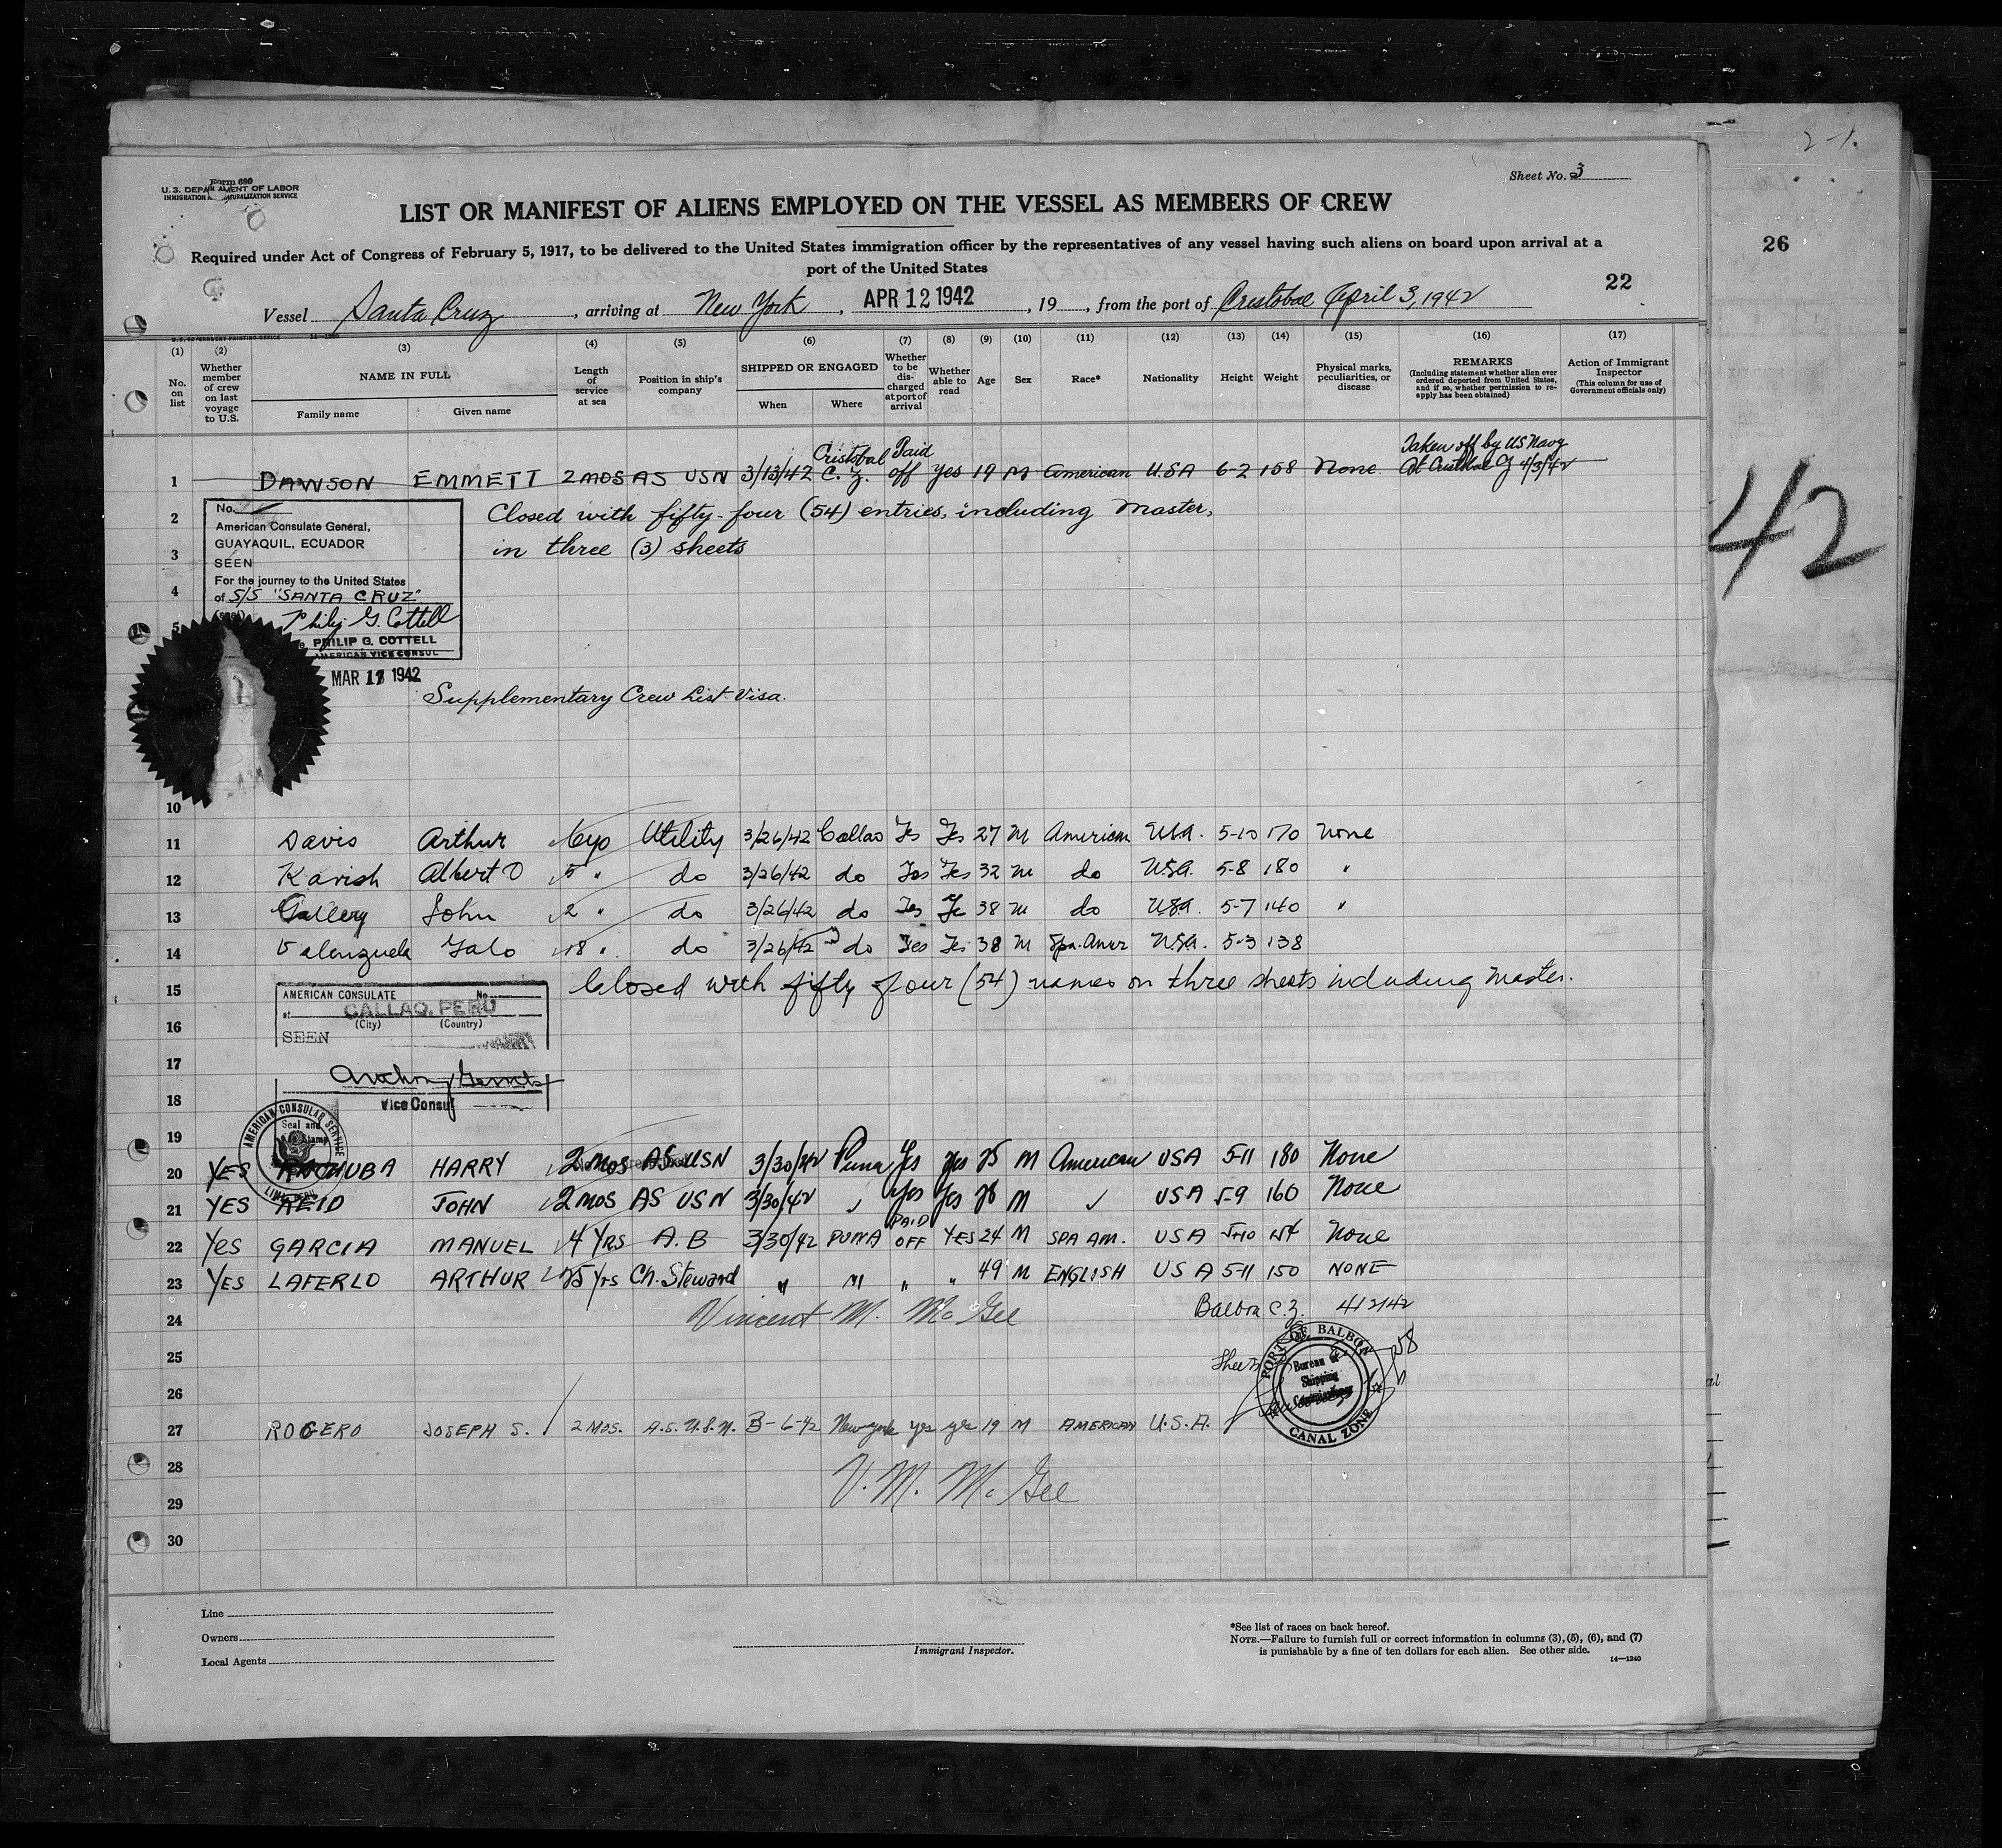 2-1.
Form 680
U.S. DEPARTMENT OF LABOR
IMMIGRATION NATURALIZATION SERVICE
Sheet No. 3
LIST OR MANIFEST OF ALIENS EMPLOYED ON THE VESSEL AS MEMBERS OF CREW
Required under Act of Congress of February 5, 1917, to be delivered to the United States immigration officer by the representatives of any vessel having such aliens on board upon arrival at a
port of the United States
26
22
Vessel Santa Cruz, arriving at New York, APR 12 1942, 19, from the port of Cristobal April 3, 1942
U.S. GOVERNMENT PRINTING OFFICE 14—1240
(1) No. on list
(2) Whether member of crew on last voyage to U.S.
(3) NAME IN FULL Family name Given name
(4) Length of service at sea
(5) Position in ship's company
(6) SHIPPED OR ENGAGED When Where
(7) Whether to be discharged at port of arrival
(8) Whether able to read
(9) Age
(10) Sex
(11) Race*
(12) Nationality
(13) Height
(14) Weight
(15) Physical marks, peculiarities, or disease
(16) REMARKS (Including statement whether alien ever ordered deported from United States, and if so, whether permission to reapply has been obtained)
(17) Action of Immigrant Inspector (This column for use of Government officials only)
1 DAWSON EMMETT 2 MOS AS USN 3/13/42 Cristobal C.Z. Paid off yes 19 M American U.S.A 6-2 158 None Taken off by US Navy At Cristobal CZ 4/3/42
2 Closed with fifty-four (54) entries, including Master,
3 in three (3) sheets
4
5
No.
American Consulate General,
GUAYAQUIL, ECUADOR
SEEN
For the journey to the United States
of S/S "SANTA CRUZ"
(seal)
Philip G. Cottell
PHILIP G. COTTELL
AMERICAN VICE CONSUL
MAR 17 1942
Supplementary Crew List Visa.
42
10
11 Davis Arthur 6yo Utility 3/26/42 Callao Yes Yes 27 M American USA. 5-10 170 None
12 Karish Albert O 5 " do 3/26/42 do Yes Yes 32 M do USA. 5-8 180 "
13 Gallery John 2 " do 3/26/42 do Yes Ye 38 M do USA. 5-7 140 "
14 Valenzuela Yalo 18 " do 3/26/42 do Yes Yes 38 M Spn. Amer USA. 5-3 138
15 Closed with fifty four (54) names on three sheets including Master.
AMERICAN CONSULATE No.
at CALLAO, PERU
(City) (Country)
SEEN
16
17
18
Vice Consul
19
AMERICAN CONSULAR SERVICE
Seal and
Stamp
LIMA, PERU
20 YES HARRY 2 MOS AS USN 3/30/42 Puna Yes Yes 18 M American USA 5-11 180 None
21 YES REID JOHN 2 MOS AS USN 3/30/42 " Yes Yes 18 M " USA 5-9 160 None
22 Yes GARCIA MANUEL 4 YRS A.B 3/30/42 PUNA PAID OFF YES 24 M SPA AM. USA 5-10 154 None
23 YES LAFERLO ARTHUR 25 Yrs Ch. Steward " " " " 49 M ENGLISH USA 5-11 150 NONE
24 Vincent M. McGee Balboa C.Z. 4/2/42
25
PORT OF BALBOA
Bureau of
Shipping
Commissioner
CANAL ZONE
26
27 ROGERO JOSEPH S. 2 MOS. A.S. U.S.N. 3-6-42 New York yes yes 19 M AMERICAN U.S.A.
28
29 V. M. McGee
30
Line
Owners
Local Agents
Immigrant Inspector.
*See list of races on back hereof.
NOTE.—Failure to furnish full or correct information in columns (3), (5), (6), and (7)
is punishable by a fine of ten dollars for each alien. See other side.
14—1240